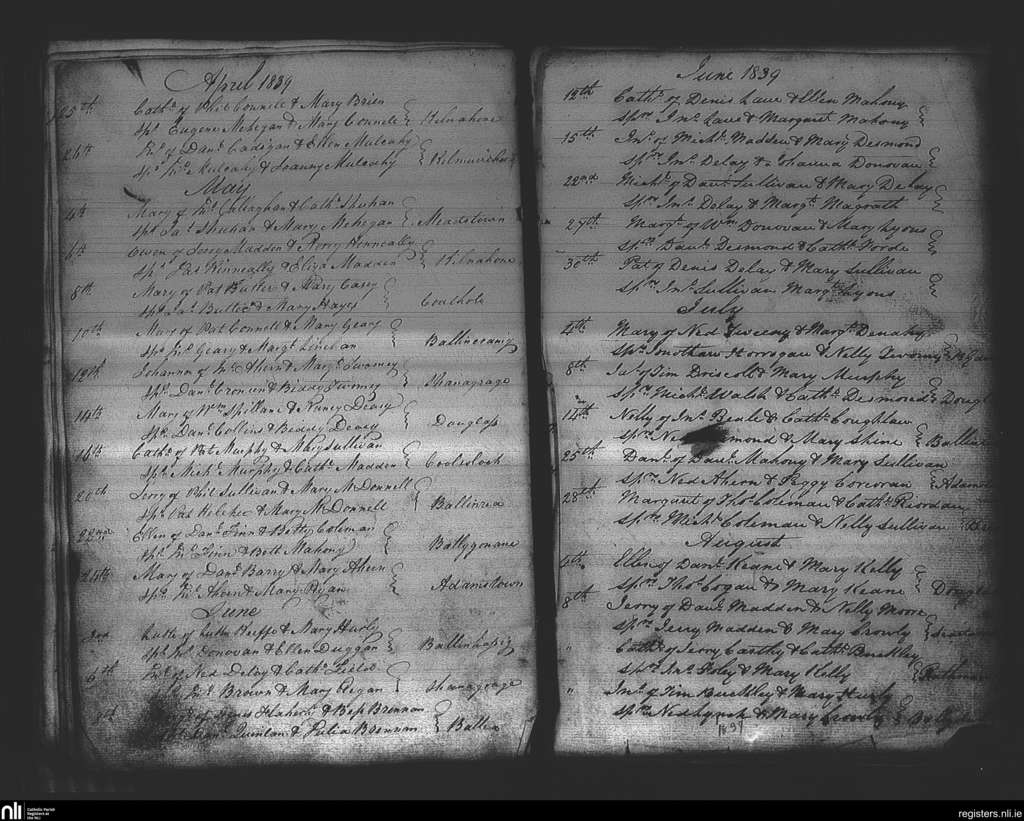 April 1839
25th Cathe. of Phil Connell & Mary Brien
Sps. Eugene Mehegan & Mary Connell Kilnahone
26th Jno. of Danl. Cadigan & Ellen Mulcahy
Sps. Jno. Mulcahy & Joanny Mulcahy
May
4th Mary of Callaghan & Cathe. Shehan
Sps. Shehan & Mary Mehegan Meadstown
6th Owen of Jerry Madden & Kenneally
Sps. Pat Kinneally & Eliza Madden Kilnahone
8th Mary of Pat Butler & Mary Casey
Sps. Butler & Mary Hayes Coachole
10th Mary of Pat Connell & Mary Geary
Sps. Geary & Margt. Linehan
12th Johanna of Jno. Ahern & Margt. Twomey
Sps. Danl. Cronin & Biddy Twomey Shanagrage
14th Mary of Wm. Spillane & Nancy Deasy
Sps. Danl. Collins & Deasy Douglass
16th Cathe. of Pat Murphy & Mary Sullivan
Sps. Michl. Murphy & Cathe. Madden
20th Jerry of Phil Sullivan & Mary McDonnell
Sps. Pat & Mary McDonnell Ballinrea
22nd Ellen of Danl. Finn & Betty Coleman
Sps. Jno. Finn & Bett Mahony Ballygonane
24th Mary of Danl. Barry & Mary Ahern
Sps. Jno. Ahern & Mary Ryan Adamstown
June
Luke of Luke Keeffe & Mary Hurly
Sps. Donovan & Ellen Duggan
6th of Ned Delay & Cathe. Field
Brown & Mary Regan Shanagrage
Flahert & Bess Brennan
Quinlan & Julia Brennan
June 1839
12th Cathe. of Denis Lane & Ellen Mahony
Sprs. Jno. Lane & Margaret Mahony
15th Jno. of Michl. Madden & Mary Desmond
Sprs. Jno. Delay & Johanna Donovan
22nd Michl. of Danl. Sullivan & Mary Delay
Sprs. Jno. Delay & Margt. Magrath
29th Margt. of Wm. Donovan & Mary Lyons
Sprs. Danl. Desmond & Cathe. Forde
30th Pat of Denis Delay & Mary Sullivan
Sprs. Jno. Sullivan Margt. Lyons
July
4th Mary of Ned Sweeny & Margt. Denahy
Sprs. Horrogan & Nelly
8th of Tim Driscoll & Mary Murphy
Sprs. Michl. Walsh & Cathe. Desmond
14th Nelly of Jno. & Cathe. Coughlan
Sprs. Ned & Mary Shine
25th Danl. of Danl. Mahony & Mary Sullivan
Sprs. Ned Ahern & Peggy Corcoran
28th Margaret of Thos. Coleman & Cathe. Riordan
Sprs. Michl. Coleman & Nelly Sullivan
August
4th Ellen of Danl. Keane & Mary Kelly
Sprs. Thos. Cogan & Mary Keane
8th Jerry of Danl. Madden & Nelly Moore
Sprs. Jerry Madden & Mary Crowly
" Cathe. of Jerry Carthy & Cathe. Buckley
Sprs. Jno. Foley & Mary Kelly
" Jno. of Tim Buckley & Mary Hurly
Sprs. Ned Lynch & Mary Crowly
1839
nli Catholic Parish Registers at the NLI
registers.nli.ie